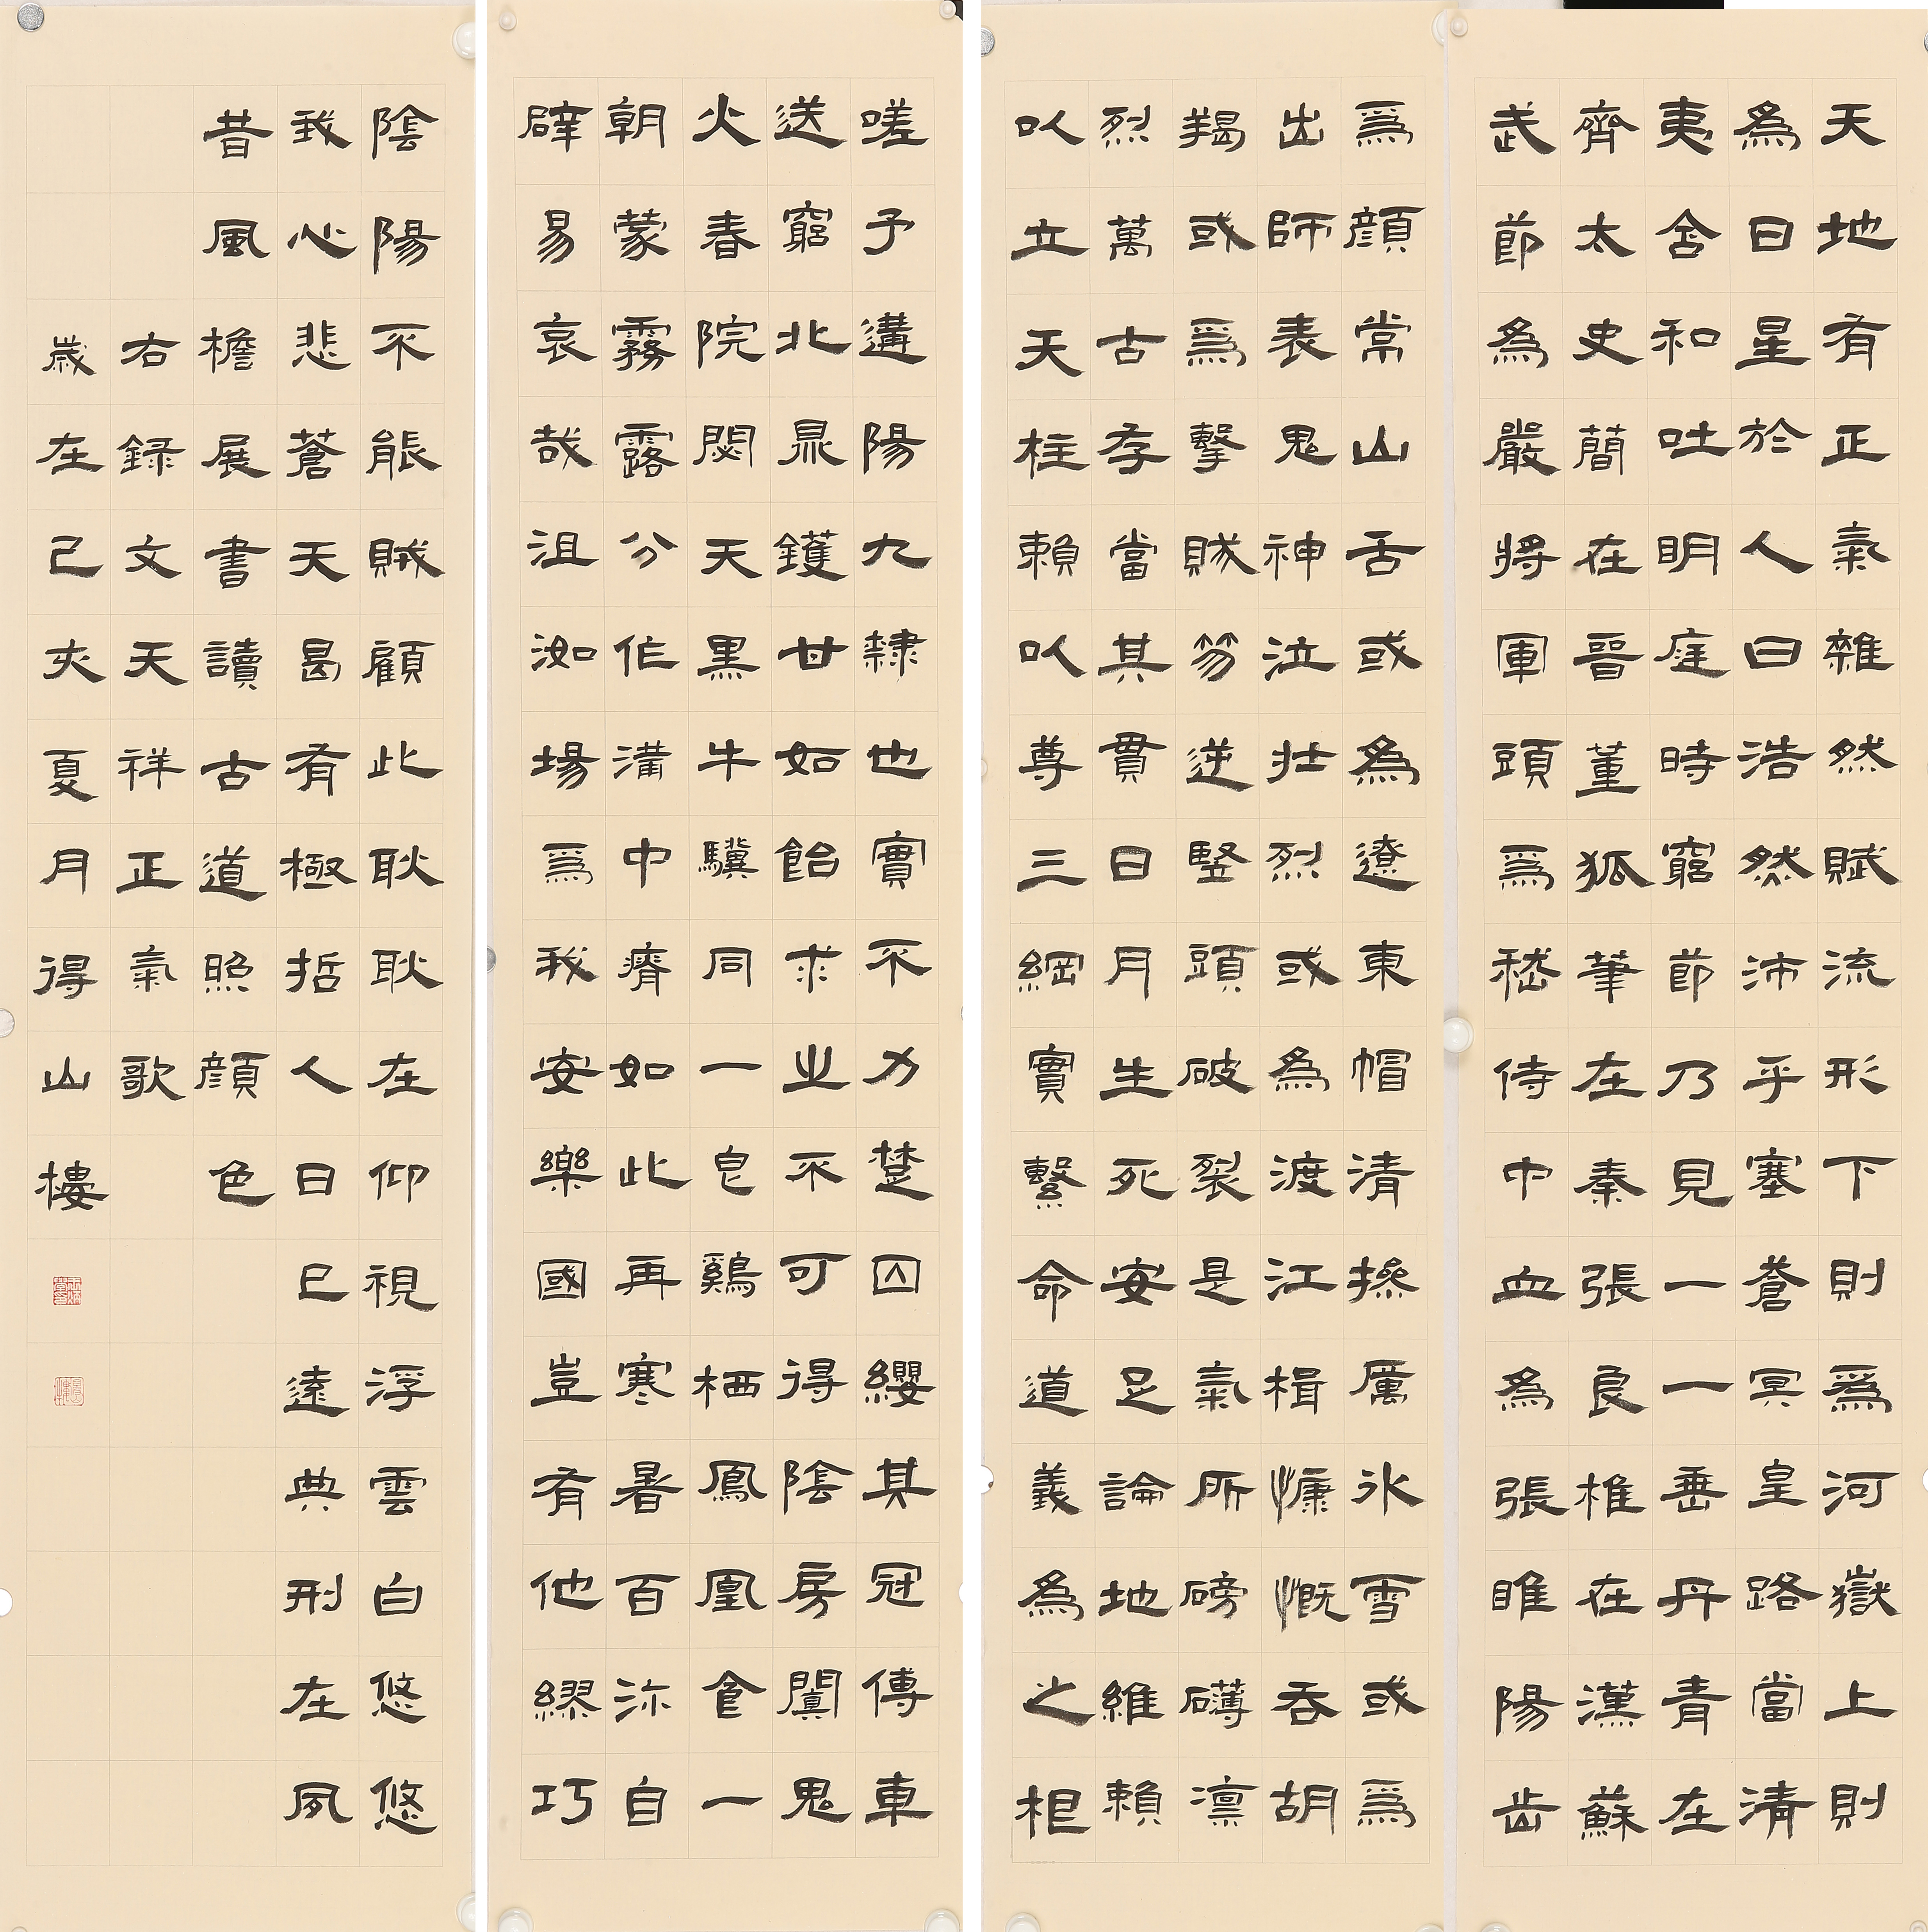 天地有正氣雜然賦流形下則爲河嶽上則
為日星於人曰浩然沛乎塞蒼冥皇路當清
夷含和吐明庭時窮節乃見一一垂丹青在
齊太史簡在晉董狐筆在秦張良椎在漢蘇
武節為嚴將軍頭爲嵇侍中血為張睢陽齒
爲顏常山舌或為遼東帽清操厲冰雪或爲
出師表鬼神泣壯烈或為渡江楫慷慨吞胡
羯或爲擊賊笏逆豎頭破裂是氣所磅礴凜
烈萬古存當其貫日月生死安足論地維賴
以立天柱賴以尊三綱實繫命道義為之根
嗟予遘陽九隸也實不力楚囚纓其冠傳車
送窮北鼎鑊甘如飴求之不可得陰房闃鬼
火春院閟天黑牛驥同一皂鷄栖鳳凰食一
朝蒙霧露分作溝中瘠如此再寒暑百沴自
辟易哀哉沮洳場爲我安樂國豈有他繆巧
陰陽不能賊顧此耿耿在仰視浮雲白悠悠
我心悲蒼天曷有極哲人日已遠典刑在夙
昔風檐展書讀古道照顏色
右録文天祥正氣歌
歲在己亥夏月得山樓